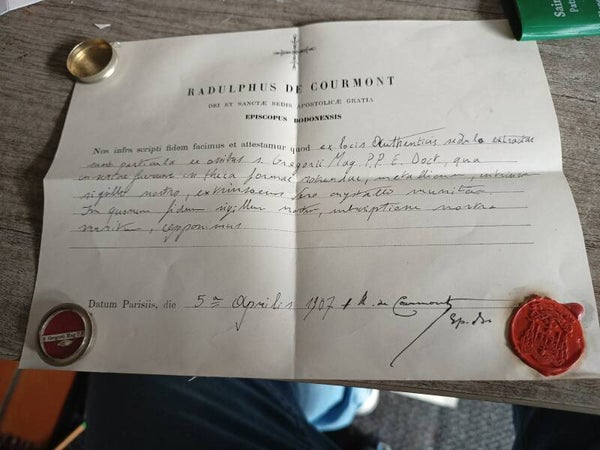 Sain
Pat
RADULPHUS DE COURMONT
DEI ET SANCTÆ SEDIS APOSTOLICÆ GRATIA
EPISCOPUS BODONENSIS
Nos infra scripti fidem facimus et attestamur quod ex locis authenticis sedulo extractae
sunt particula ex ossibus s. Gregorii Mag. P.P. E. Doct, quae
in theca formae rotundae, metallicae, interius
sigillo nostro, extrinsecus vero crystallo munitae
In quorum fidem sigillum nostrum, inscriptione nostra
Datum Parisiis, die 5a Aprilis 1907 + R. de Courmont
Ep.
S. Gregorii Mag. P.